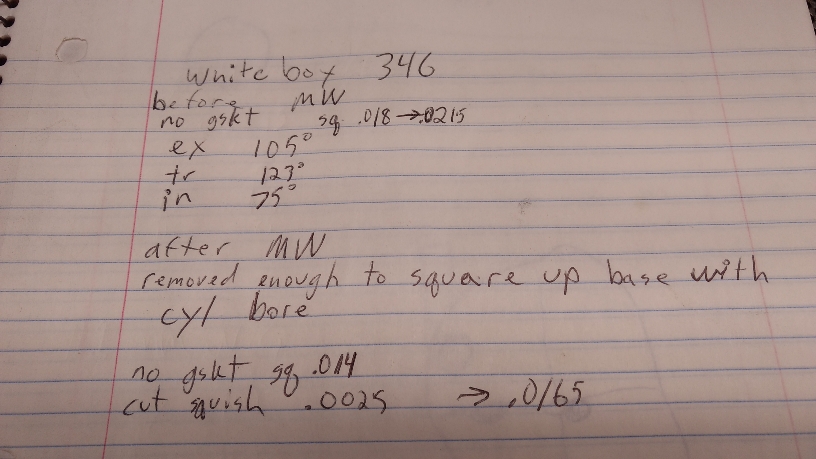 white box 346
before MW
no gskt sq .018 → .0215
ex 105°
tr 123°
in 75°
after MW
removed enough to square up base with
cyl bore
no gskt sq .014
cut squish .0025 → .0165